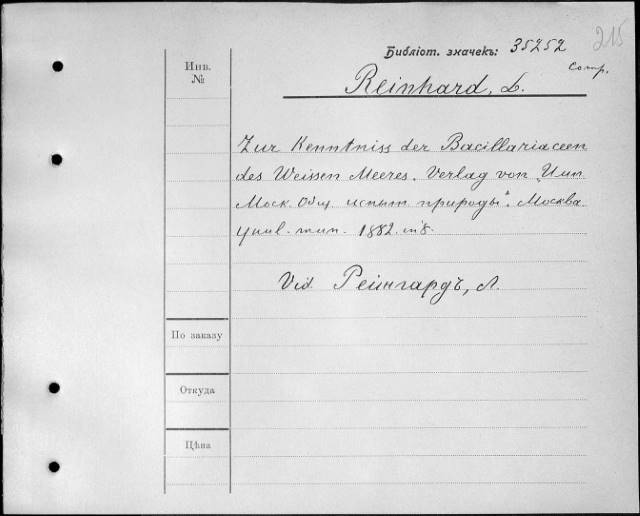 215
Библіот. значекъ: 35252
Comp.
Инв.
№
Reinhard, L.
Zur Kenntniss der Bacillariaceen
des Weissen Meeres. Verlag von „Имп.
Моск. Общ. испыт. природы“. Москва.
Унив. тип. 1882. in 8.
Vid. Рейнгардъ, Л.
По заказу
Откуда
Цѣна